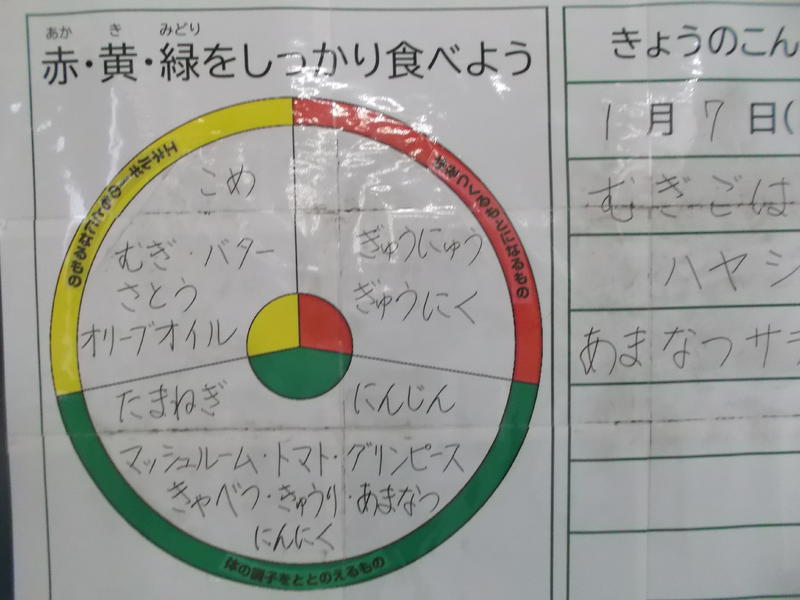 あか き みどり
赤・黄・緑をしっかり食べよう
エネルギーのもとになるもの
体をつくるもとになるもの
こめ
むぎ・バター
さとう
オリーブオイル
ぎゅうにゅう
ぎゅうにく
たまねぎ
にんじん
マッシュルーム・トマト・グリンピース
きゃべつ・きゅうり・あまなつ
にんにく
体の調子をととのえるもの
きょうのこん
1月7日(
むぎごは
ハヤシ
あまなつサラ